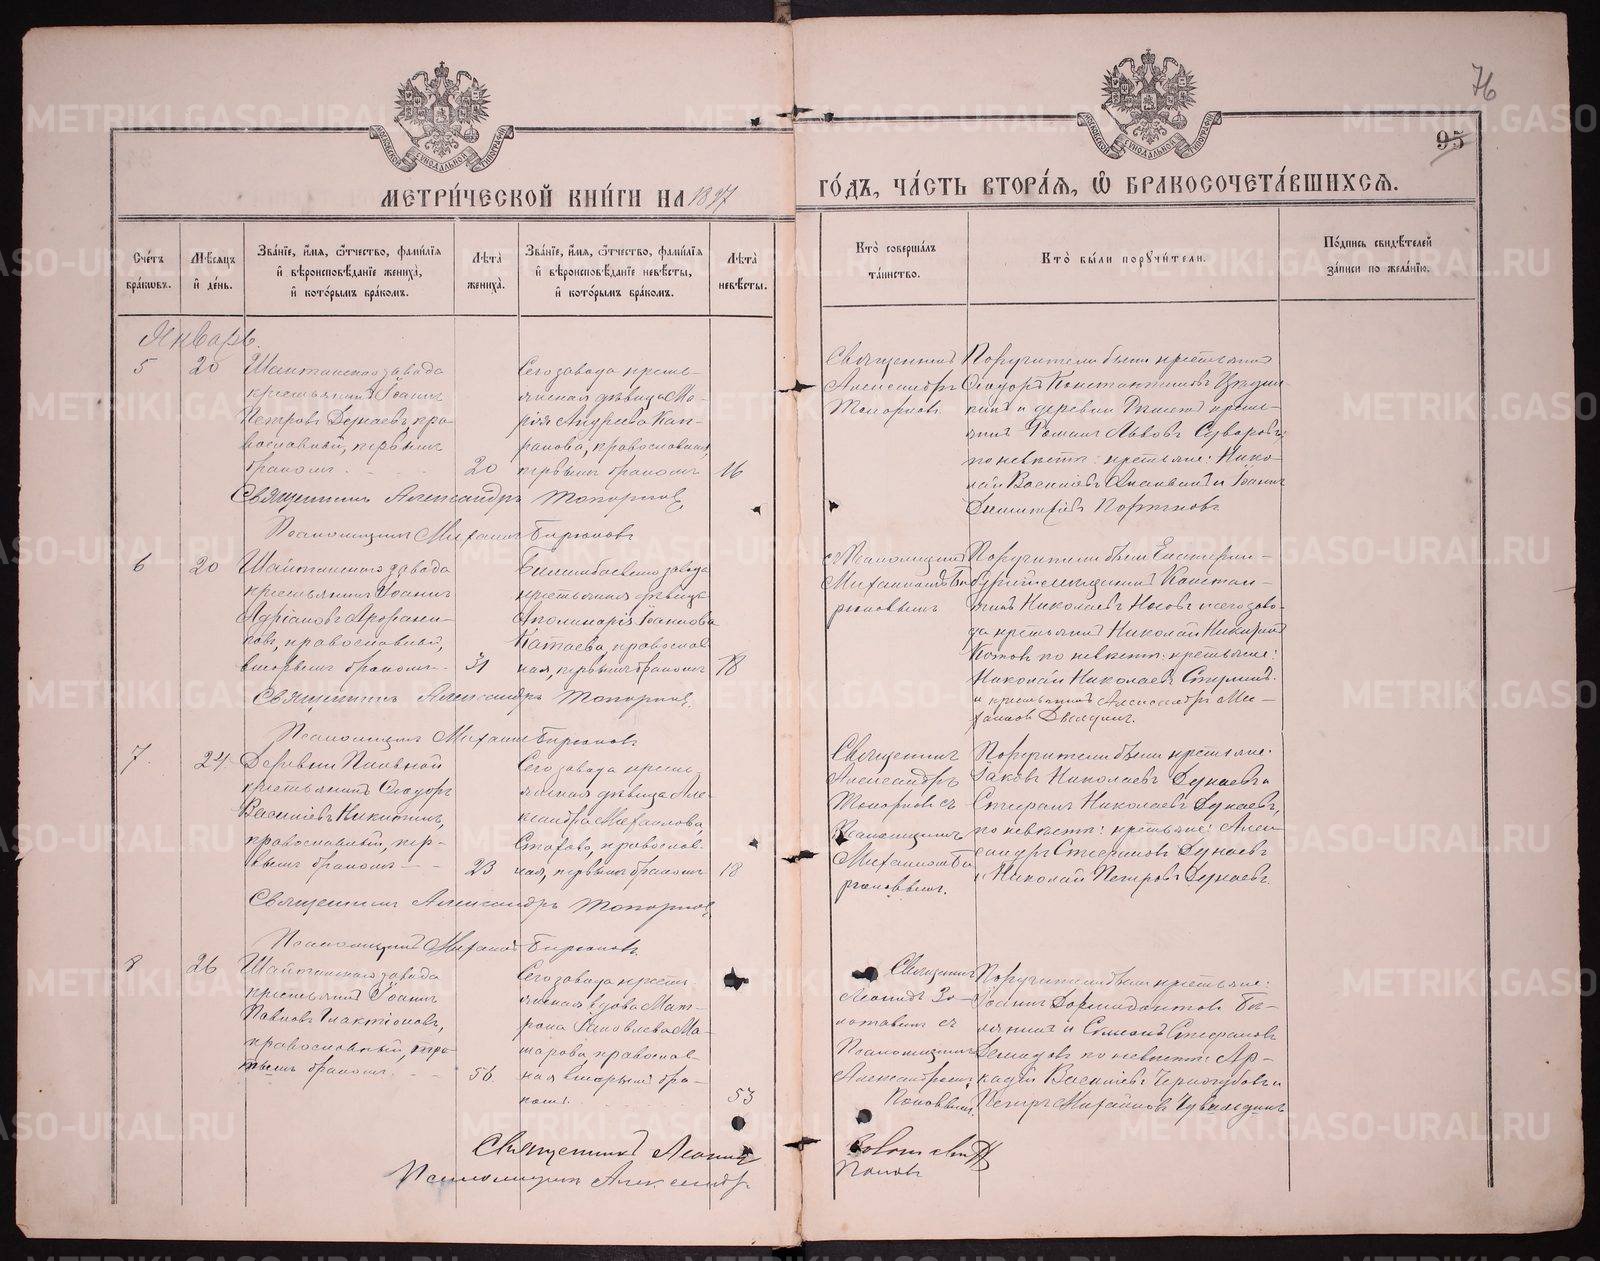 76
95
МЕТРИ́ЧЕСКОЙ КНИ́ГИ НА 1897
ГО́ДЪ, ЧА́СТЬ ВТОРА́Ѧ, Ѽ БРАКОСОЧЕТА́ВШИХСѦ.
Сче́тъ бра́кѡвъ.
Мѣ́сѧцъ и҆ де́нь.
Зва́нїе, и҆́мѧ, ѻ҆́тчество, фами́лїѧ и҆ вѣроисповѣ́данїе жениха̀, и҆ кото́рымъ бра́комъ.
Лѣ́та жениха̀.
Зва́нїе, и҆́мѧ, ѻ҆́тчество, фами́лїѧ и҆ вѣроисповѣ́данїе невѣ́сты, и҆ кото́рымъ бра́комъ.
Лѣ́та невѣ́сты.
Кто̀ соверша́лъ та́инство.
Кто̀ бы́ли порꙋчи́тели.
По́дпись свидѣ́телей за́писи по жела́нїю.
Январь.
5
20
Шайтанскаго завода
крестьянинъ Іоаннъ
Петровъ Дунаевъ, пра-
вославный, первымъ
бракомъ
20
Сего завода кресть-
янская дѣвица Ма-
рія Андреева Кап-
ралова, православная,
первымъ бракомъ
16
Священникъ
Александръ
Топорковъ
Поручители были крестьяне
Ѳеодоръ Константиновъ
и деревни кресть-
янинъ Романъ Львовъ Суворовъ;
по невѣстѣ: крестьяне: Нико-
лай Васильевъ и Іоаннъ
Димитріевъ
Священникъ Александръ Топорковъ
Псаломщикъ Михаилъ Бирюковъ
6
20
Шайтанскаго завода
крестьянинъ Іоаннъ
Адріановъ
православный,
вторымъ бракомъ
31
Билимбаевскаго завода
крестьянская дѣвица
Аполинарія Іоаннова
Катаева, православ-
ная, первымъ бракомъ
18
съ Псаломщикомъ
Михаиломъ Би-
рюковымъ
Поручители были Екатерин-
бургскій мѣщанинъ Констан-
тинъ Николаевъ Носовъ и сего заво-
да крестьянинъ Николай
по невѣстѣ: крестьяне:
Николай Николаевъ
и крестьянинъ Александръ Ми-
хаиловъ
Священникъ Александръ Топорковъ
Псаломщикъ Михаилъ Бирюковъ
7.
24.
Деревни
крестьянинъ Ѳеодоръ
Васильевъ Никитинъ,
православный, пер-
вымъ бракомъ
23
Сего завода кресть-
янская дѣвица Але-
ксандра Михайлова
православ-
ная, первымъ бракомъ
18
Священникъ
Александръ
Топорковъ съ
Псаломщикомъ
Михаиломъ Би-
рюковымъ.
Поручители были крестьяне:
Іаковъ Николаевъ Дунаевъ и
Стефанъ Николаевъ Дунаевъ,
по невѣстѣ: крестьяне: Алек-
сандръ Стефановъ Дунаевъ
и Николай Петровъ Дунаевъ.
Священникъ Александръ Топорковъ
Псаломщикъ Михаилъ Бирюковъ
8
26
Шайтанскаго завода
крестьянинъ Іоаннъ
Павловъ Галактіоновъ,
православный, тре-
тьимъ бракомъ
56
Сего завода кресть-
янская вдова Мат-
рона Іаковлева Ма-
карова православ-
ная вторымъ бра-
комъ.
53
Священникъ
Леонидъ Зо-
лотавинъ съ
Псаломщикомъ
Александромъ
Поповымъ
Поручители были крестьяне:
Іоаннъ
и Симеонъ Стефановъ
Демидовъ по невѣстѣ: Ар-
кадій Васильевъ Черногубовъ и
Петръ Михайловъ
Священникъ Леонидъ Золотавинъ
Псаломщикъ Александръ Поповъ
METRIKI.GASO-URAL.RU